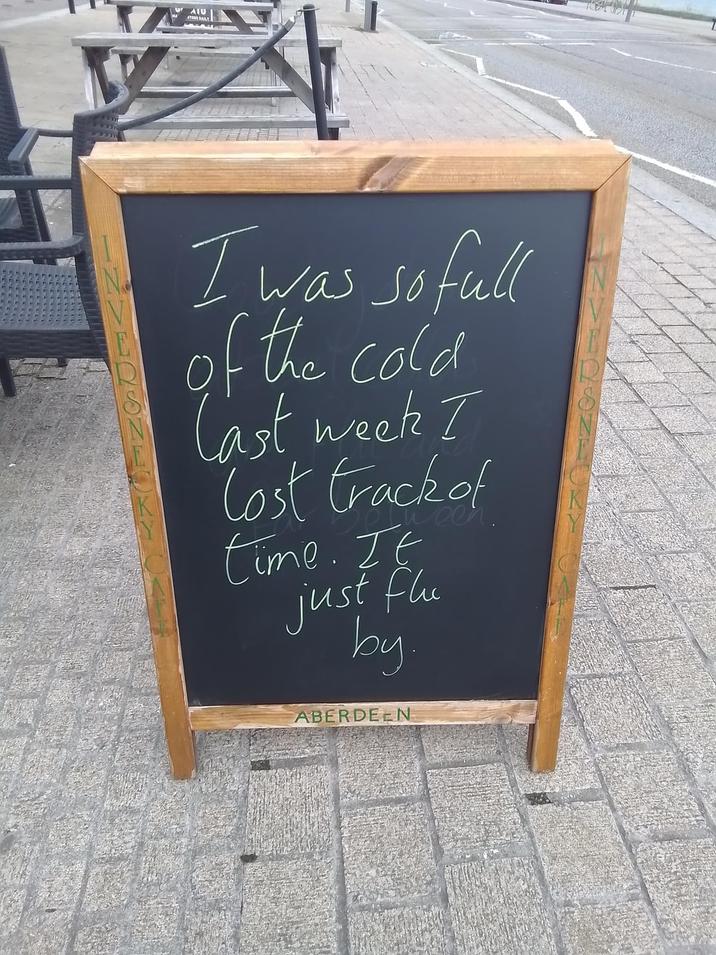 I was so full
of the cold
last week I
lost track of
time. It
just flu
by.
INVERSNECKY CAFE
INVERSNECKY CAFE
ABERDEEN